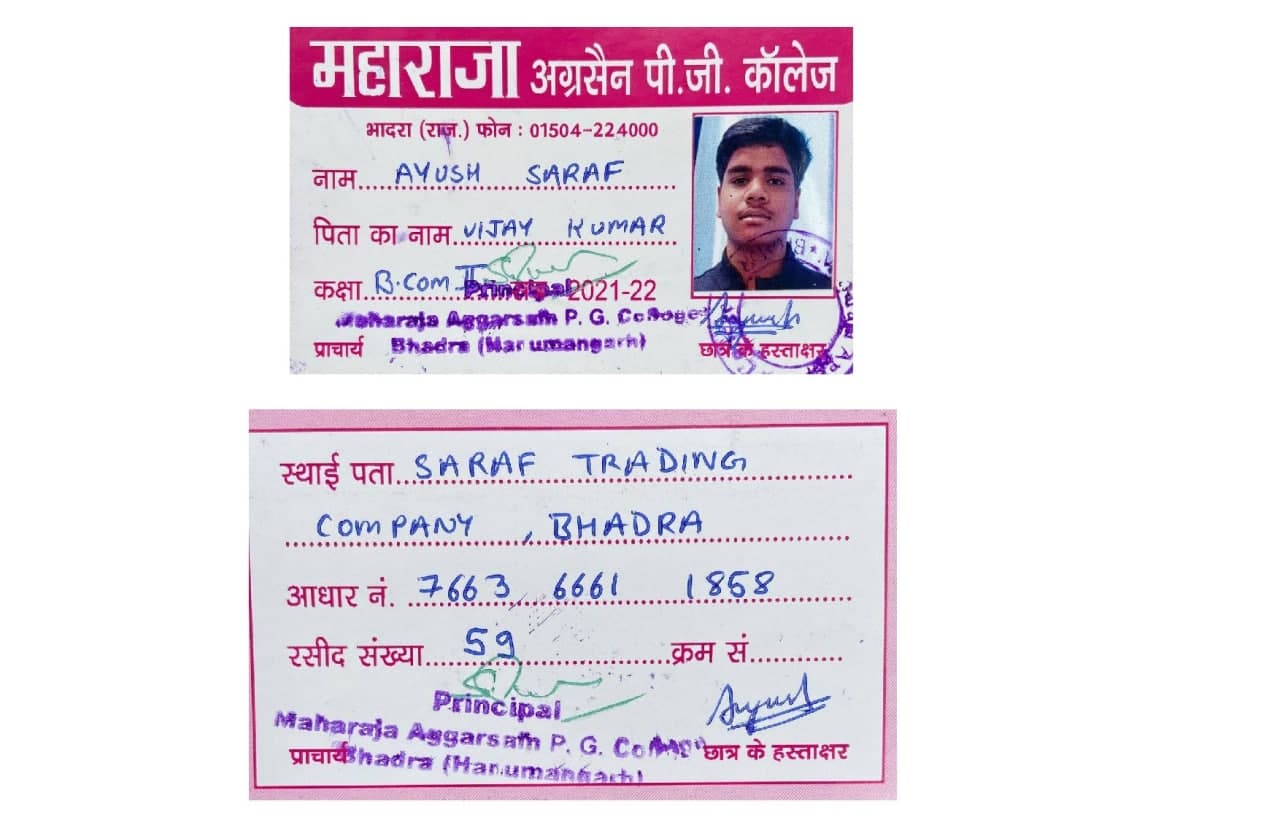 महाराजा अग्रसैन पी.जी. कॉलेज
भादरा (राज.) फोन : 01504-224000
नाम.... AYUSH SARAF
पिता का नाम.. VIJAY KUMAR
कक्षा.. B.Com II 2021-22
Principal
Maharaja Aggarsain P. G. College
प्राचार्य Bhadra (Hanumangarh) छात्र के हस्ताक्षर
स्थाई पता... SARAF TRADING
COMPANY , BHADRA
आधार नं. 7663 6661 1858
रसीद संख्या.... 59 ....क्रम सं...........
Principal
Maharaja Aggarsain P. G. College
प्राचार्य Bhadra (Hanumangarh) छात्र के हस्ताक्षर